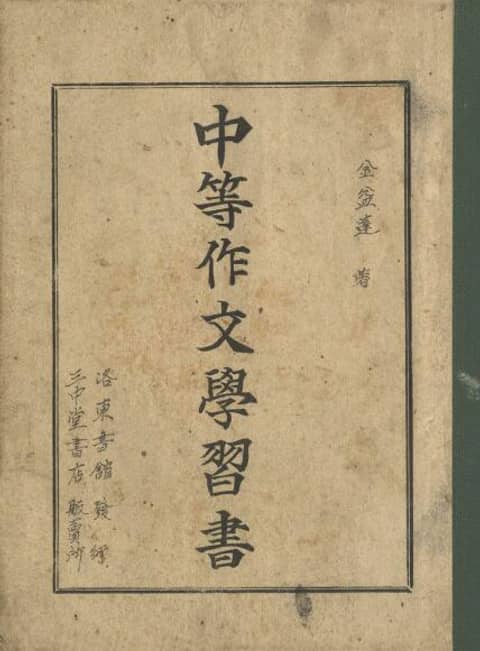 金益達 著
中等作文學習書
洛東書館 發行
三中堂書店 販賣所